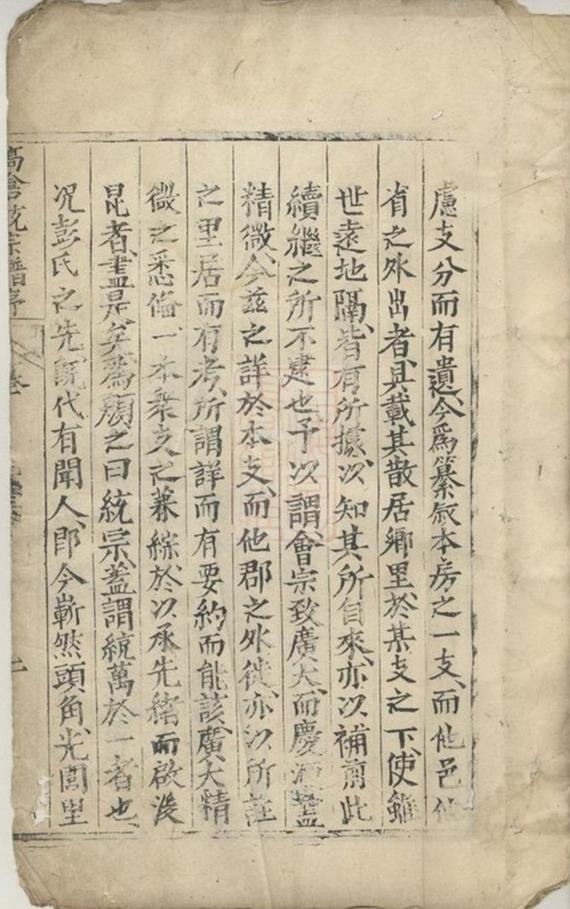 慮支分而有遺今爲纂叙本房之一支、而他邑他
省之外出者、具載其散居鄉里於某支之下、使雖
世遠地隔、皆有所據、以知其所自來、亦以補前此
續繼之所不逮也、予以謂、會宗致廣大、而慶源盡
精微、今茲之詳於本支、而他郡之外徙、亦以所註
之里居而有考、所謂詳而有要、約而能該、廣大精
微之悉備、一本衆支之兼綜、於以承先緒而啟後
昆者、盡是矣、爲顏之曰統宗、蓋謂統萬於一者也
況彭氏之先、旣代有聞人、卽今嶄然頭角、光閭里
統宗譜序